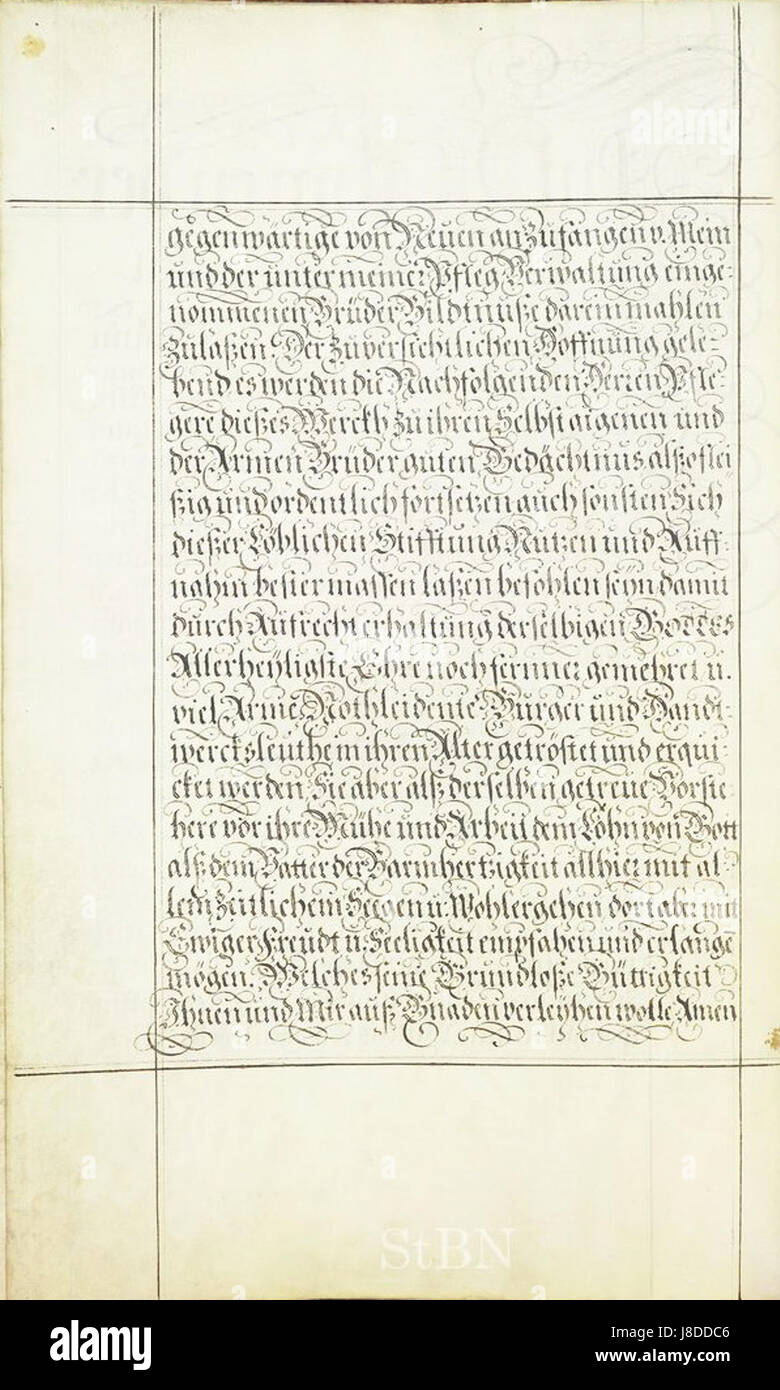 gegenwärtige von Neuen an Zufangen v. Mein
und der unter meiner Pfleg Verwaltung einge-
nommenen Brüder Bildtnuße darein mahlen
Zulaßen. Der Zuversichtlichen Hoffnung gele-
bend es werden die Nachfolgenden Herren Pfle-
gere dießes Werckh zu ihren Selbst aigenen und
der Armen Brüder guten Gedächtnus, alßo flei
ßig und ordentlich fortsetzen auch sonsten Sich
dießer Löblichen Stifftung Nutzen und Auff-
nahm bester massen laßen befohlen seyn damit
durch Aufrecht erhaltung derselbigen GOTTES
Allerheyligste Ehre noch fernner gemehret u.
viel Arme, Nothleidente Burger und Handt-
wercksleuthe in ihren Alter getröstet und erqui-
cket werden, Sie aber alß derselben getreue Vorste-
here vor ihre Mühe und Arbeit dem Lohn von Gott
alß dem Vatter der Barmhertzigkeit allhier mit al-
lem Zeitlichem Seegen u. Wohlergehen dort aber mit
Ewiger Freudt u. Seeligkeit empfahen und erlangē
mögen. Welches seine Grundloße Güttigkeit
Ihnen und Mir auß Gnaden verleyhen wolle Amen
StBN
alamy
Image ID: J8DDC6
www.alamy.com